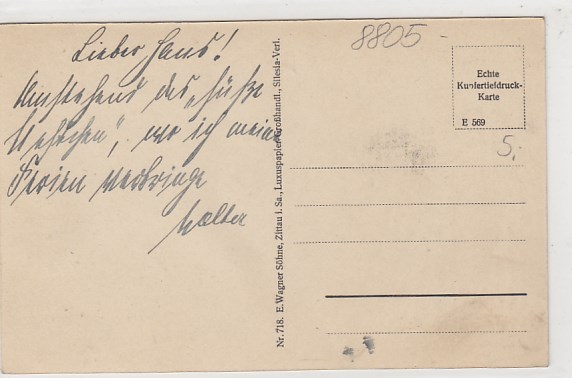 Lieber Hans!
Umstehend das „süße
Löchen“, wo ich meine
Ferien verbringe
Walter
8805 -
Echte
Kupfertiefdruck-
Karte
E 569
5,-
Nr. 718. E. Wagner Söhne, Zittau i. Sa., Luxuspapier-Großhandl., Silesia-Verl.